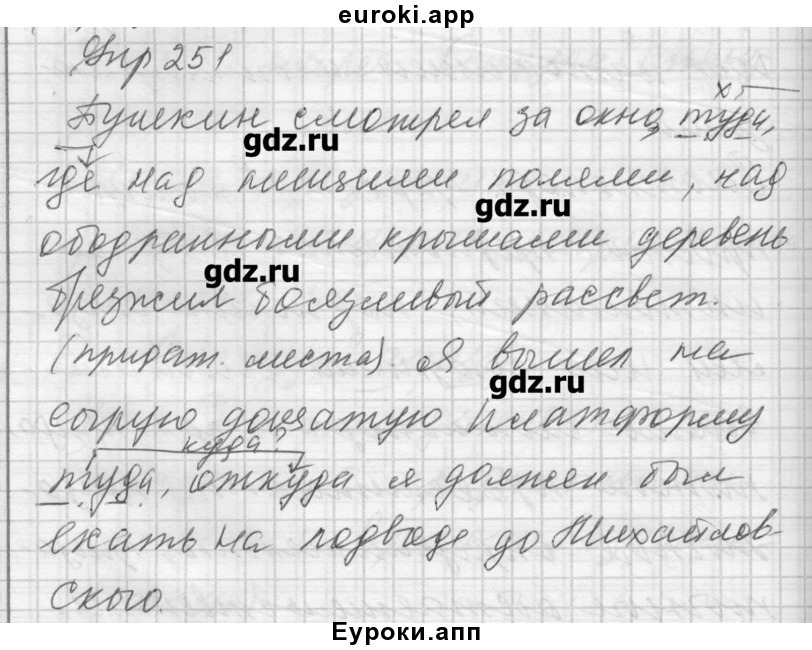 euroki.app
Упр 251
Пушкин смотрел за окно, туда,
gdz.ru
где над нищими полями, над
gdz.ru
ободранными крышами деревень
gdz.ru
брезжил боязливый рассвет.
(придат. места). Я вышел на
gdz.ru
сырую дощатую платформу
куда?
туда, откуда я должен был
ехать на подводе до Михайлов-
ского.
Еуроки.апп